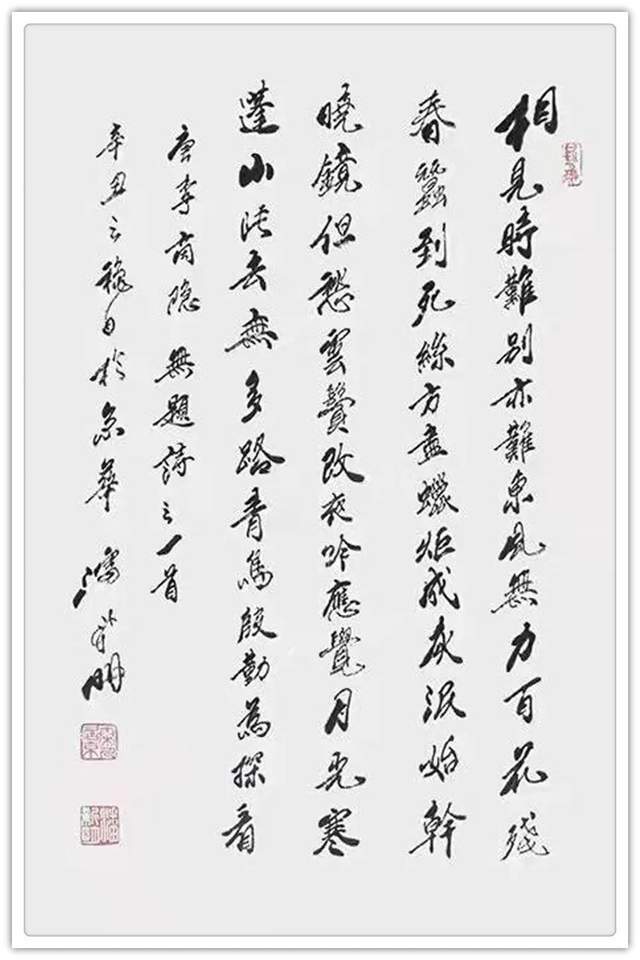 相見時難別亦難東風無力百花殘
春蠶到死絲方盡蠟炬成灰淚始幹
曉鏡但愁雲鬢改夜吟應覺月光寒
蓬山此去無多路青鳥殷勤為探看
唐李商隐無題詩之一首
辛丑之穐日於京華 潘明